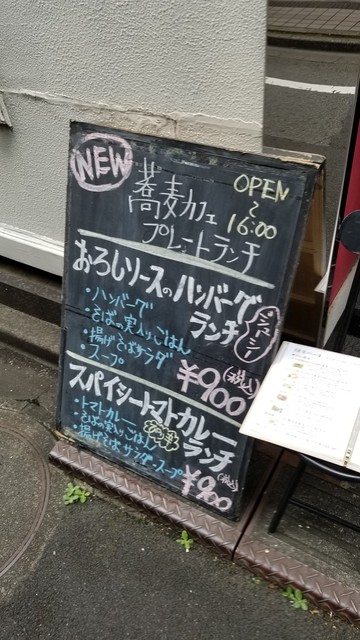 NEW
蕎麦カフェ
プレートランチ
OPEN
〜
16:00
おろしソースのハンバーグ
ランチ
ジューシー
・ハンバーグ
・そばの実入りごはん
・揚げそばサラダ
・スープ
¥900(税込)
スパイシートマトカレー
ランチ
・トマトカレー
・そばの実入りごはん
・揚げそばサラダ・スープ
¥900